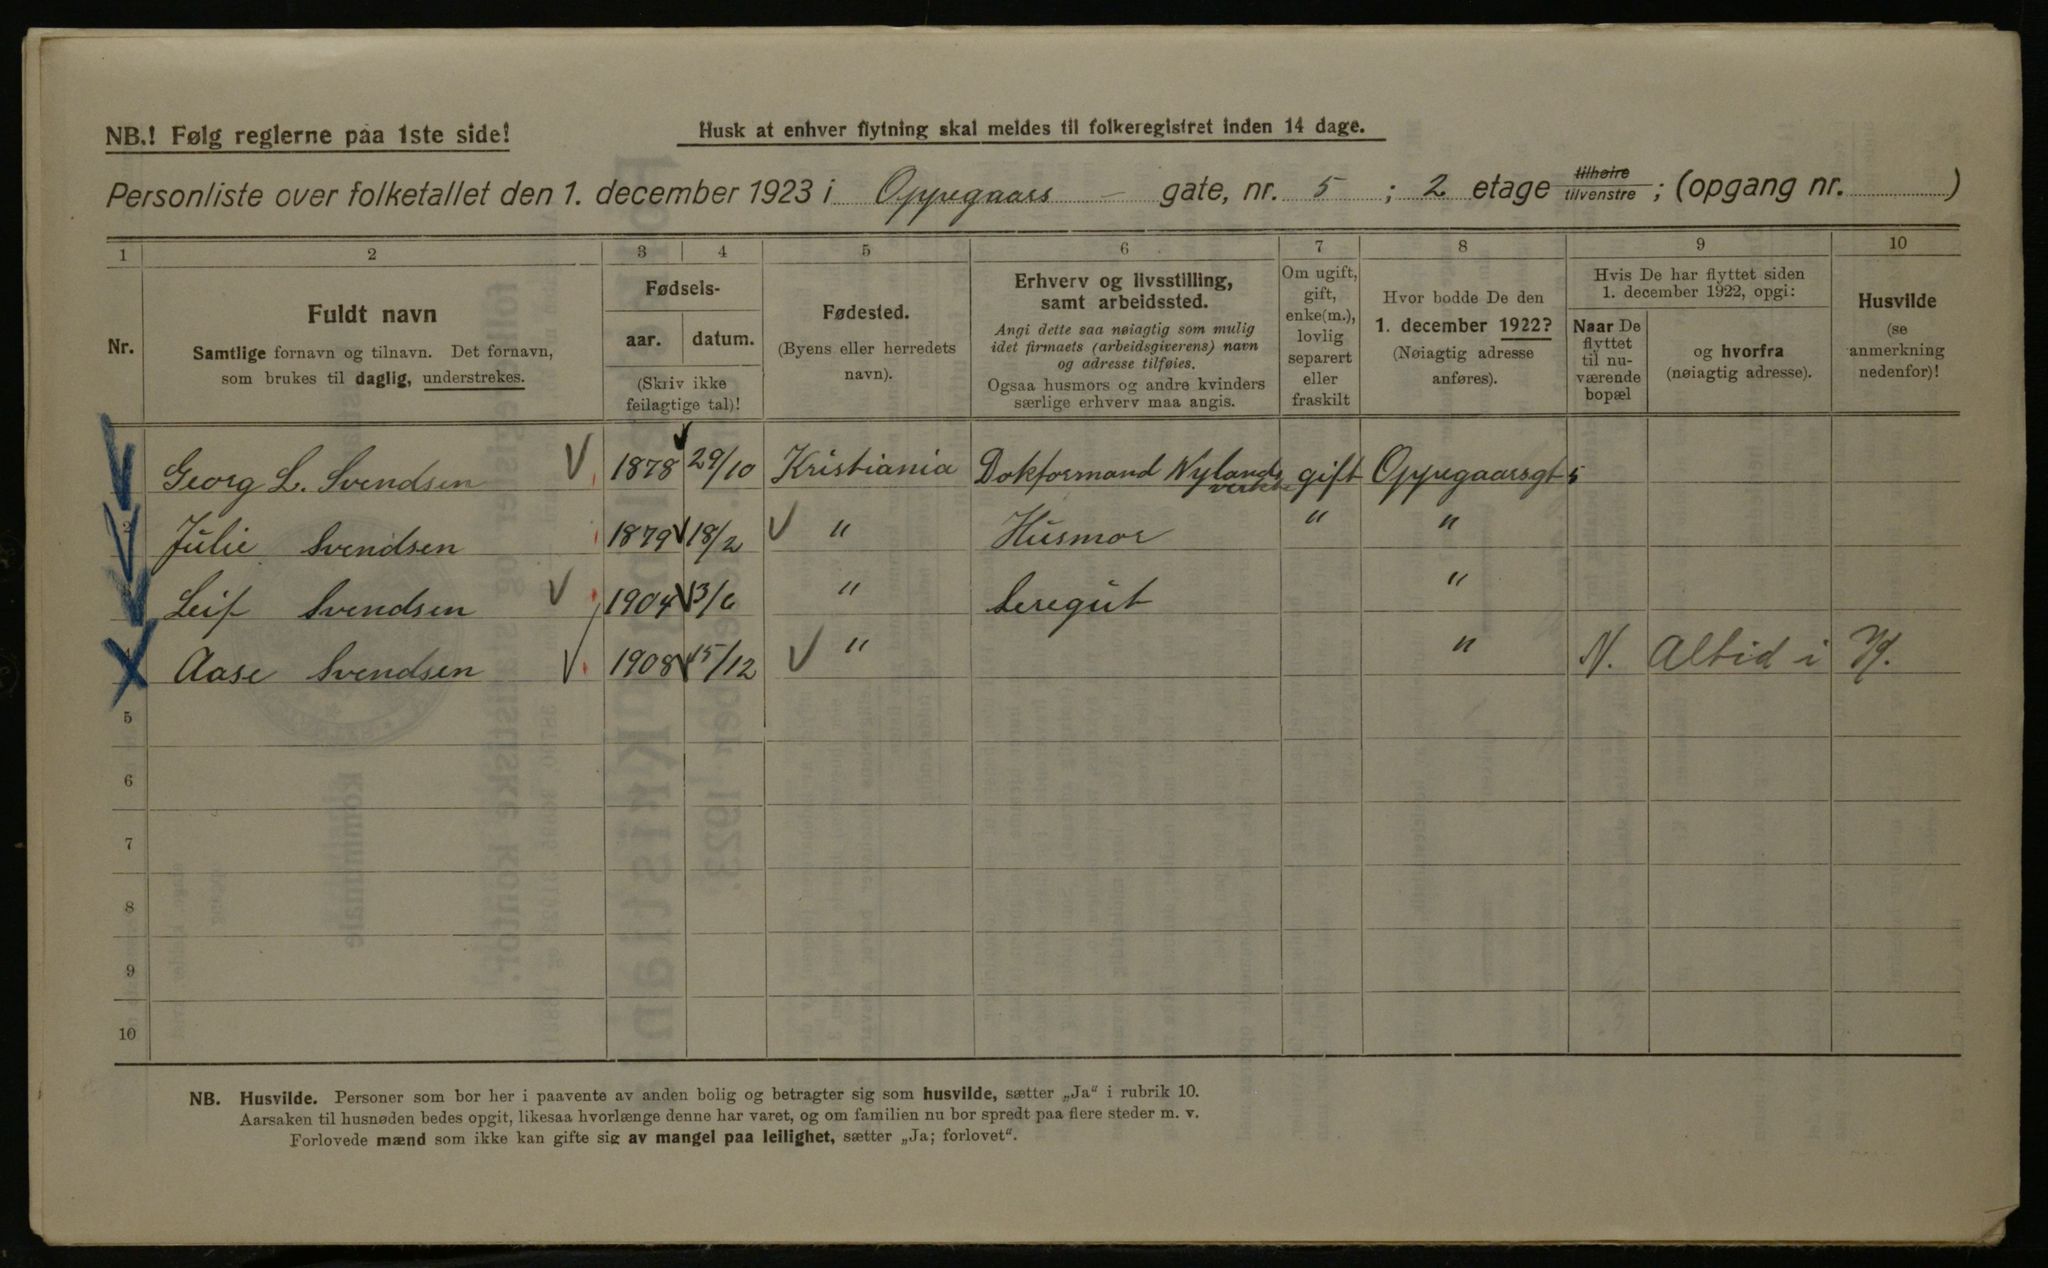 NB.! Følg reglerne paa 1ste side!
Husk at enhver flytning skal meldes til folkeregistret inden 14 dage.
Personliste over folketallet den 1. december 1923 i Oppegaars - gate, nr. 5 ; 2 etage tilhøire tilvenstre ; (opgang nr. )
1 2 3 4 5 6 7 8 9 10
Nr.
Fuldt navn
Samtlige fornavn og tilnavn. Det fornavn,
som brukes til daglig, understrekes.
Fødsels-
aar. datum.
(Skriv ikke
feilagtige tal)!
Fødested.
(Byens eller herredets
navn).
Erhverv og livsstilling,
samt arbeidssted.
Angi dette saa nøiagtig som mulig
idet firmaets (arbeidsgiverens) navn
og adresse tilføies.
Ogsaa husmors og andre kvinders
særlige erhverv maa angis.
Om ugift,
gift,
enke(m.),
lovlig
separert
eller
fraskilt
Hvor bodde De den
1. december 1922?
(Nøiagtig adresse
anføres).
Hvis De har flyttet siden
1. december 1922, opgi:
Naar De
flyttet
til nu-
værende
bopæl
og hvorfra
(nøiagtig adresse).
Husvilde
(se
anmerkning
nedenfor)!
Georg L. Svendsen 1878 29/10 Kristiania Dokformand Nylands verksted gift Oppegaarsgt 5
Julie Svendsen 1879 18/2 " Husmor " "
Leif Svendsen 1904 13/6 " Læregut "
4 Aase Svendsen 1908 15/12 " " N. Altid i N.
5
6
7
8
9
10
NB. Husvilde. Personer som bor her i paavente av anden bolig og betragter sig som husvilde, sætter „Ja“ i rubrik 10.
Aarsaken til husnøden bedes opgit, likesaa hvorlænge denne har varet, og om familien nu bor spredt paa flere steder m. v.
Forlovede mænd som ikke kan gifte sig av mangel paa leilighet, sætter „Ja; forlovet“.